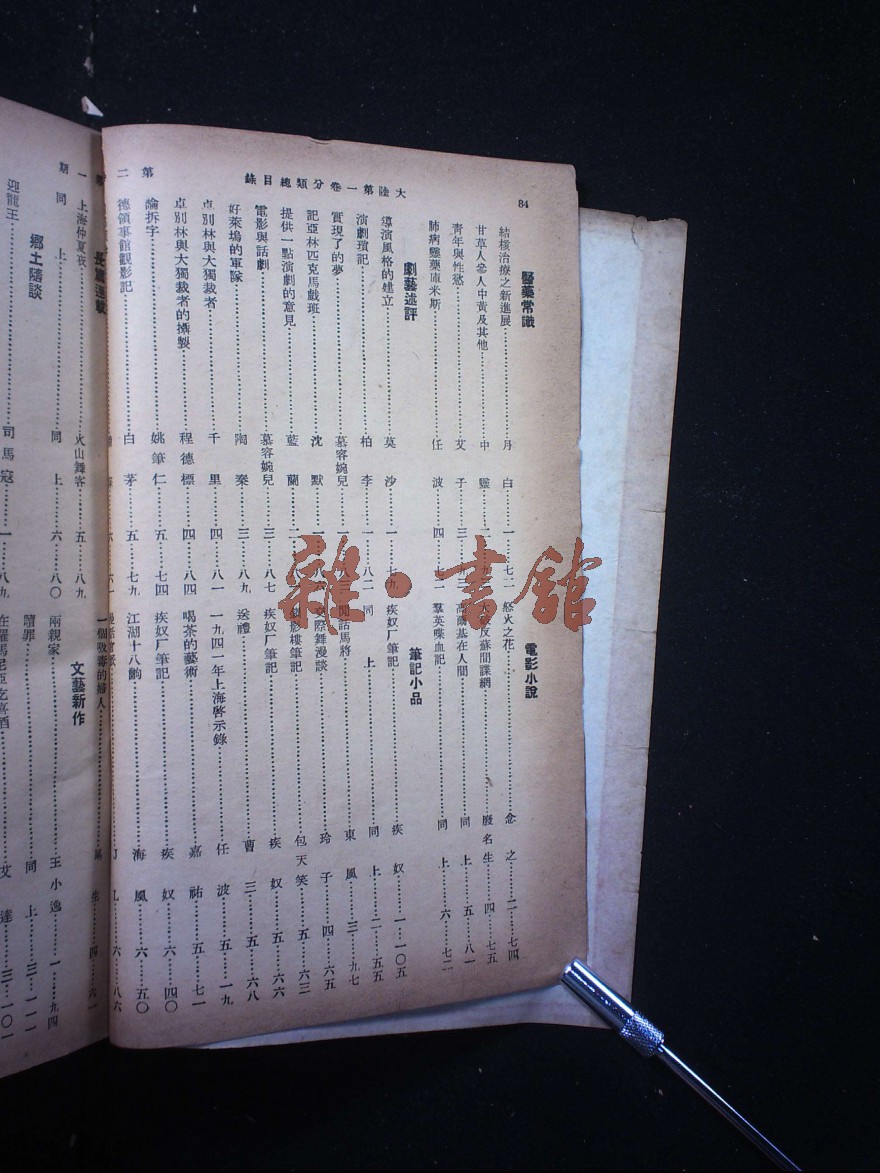 84
大陸第一卷分類總目錄
第二
一期
醫藥常識
結核治療之新進展……丹白…一…七二
甘草人參人中黃及其他……中
青年與性慾……艾子…三
肺病靈藥庫米斯……任波…四…七二
劇藝述評
導演風格的建立……莫沙…一…七九
演劇瑣記……柏李…一…八二
實現了的夢……慕容婉兒…一
記亞林匹克馬戲班……沈默…一
提供一點演劇的意見……藍蘭…二
電影與話劇……慕容婉兒…三…八七
好萊塢的軍隊……陶秦…三…八九
卓別林與大獨裁者……千里…四…八一
卓別林與大獨裁者的攝製……程德標…四…八四
論拆字……姚筆仁…五…七四
德領事館觀影記……白茅…五…七九
電影小說
怒火之花……念之…二…七四
大破反蘇間諜網……廢名生…四…七五
高爾基在人間……同上…五…八一
羣英喋血記……同上…六…七二
筆記小品
疾奴厂筆記……疾奴…一…一〇五
同上……同上…二…五五
閒話馬將……東風…三…九七
交際舞漫談……玲子…四…六五
釧影樓筆記……包天笑…五…六三
疾奴厂筆記……疾奴…五…六六
送禮……曹三…五…六八
一九四一年上海啓示錄……任波…五…一九
喝茶的藝術……嘉祐…五…七一
疾奴厂筆記……疾奴…六…四〇
江湖十八齣……海風…六…五〇
六…八六
長篇連載
上海仲夏夜……火山舞客…五…八九
同上……同上…六…八〇
鄉土隨談
迎龍王……司馬寇…一…八九
一個吸毒的婦人……生…四…六一
文藝新作
兩親家……王小逸…一…九四
贖罪……同上…三…一一一
在羅馬尼亞吃喜酒……艾達…三…一〇一
雜·書館